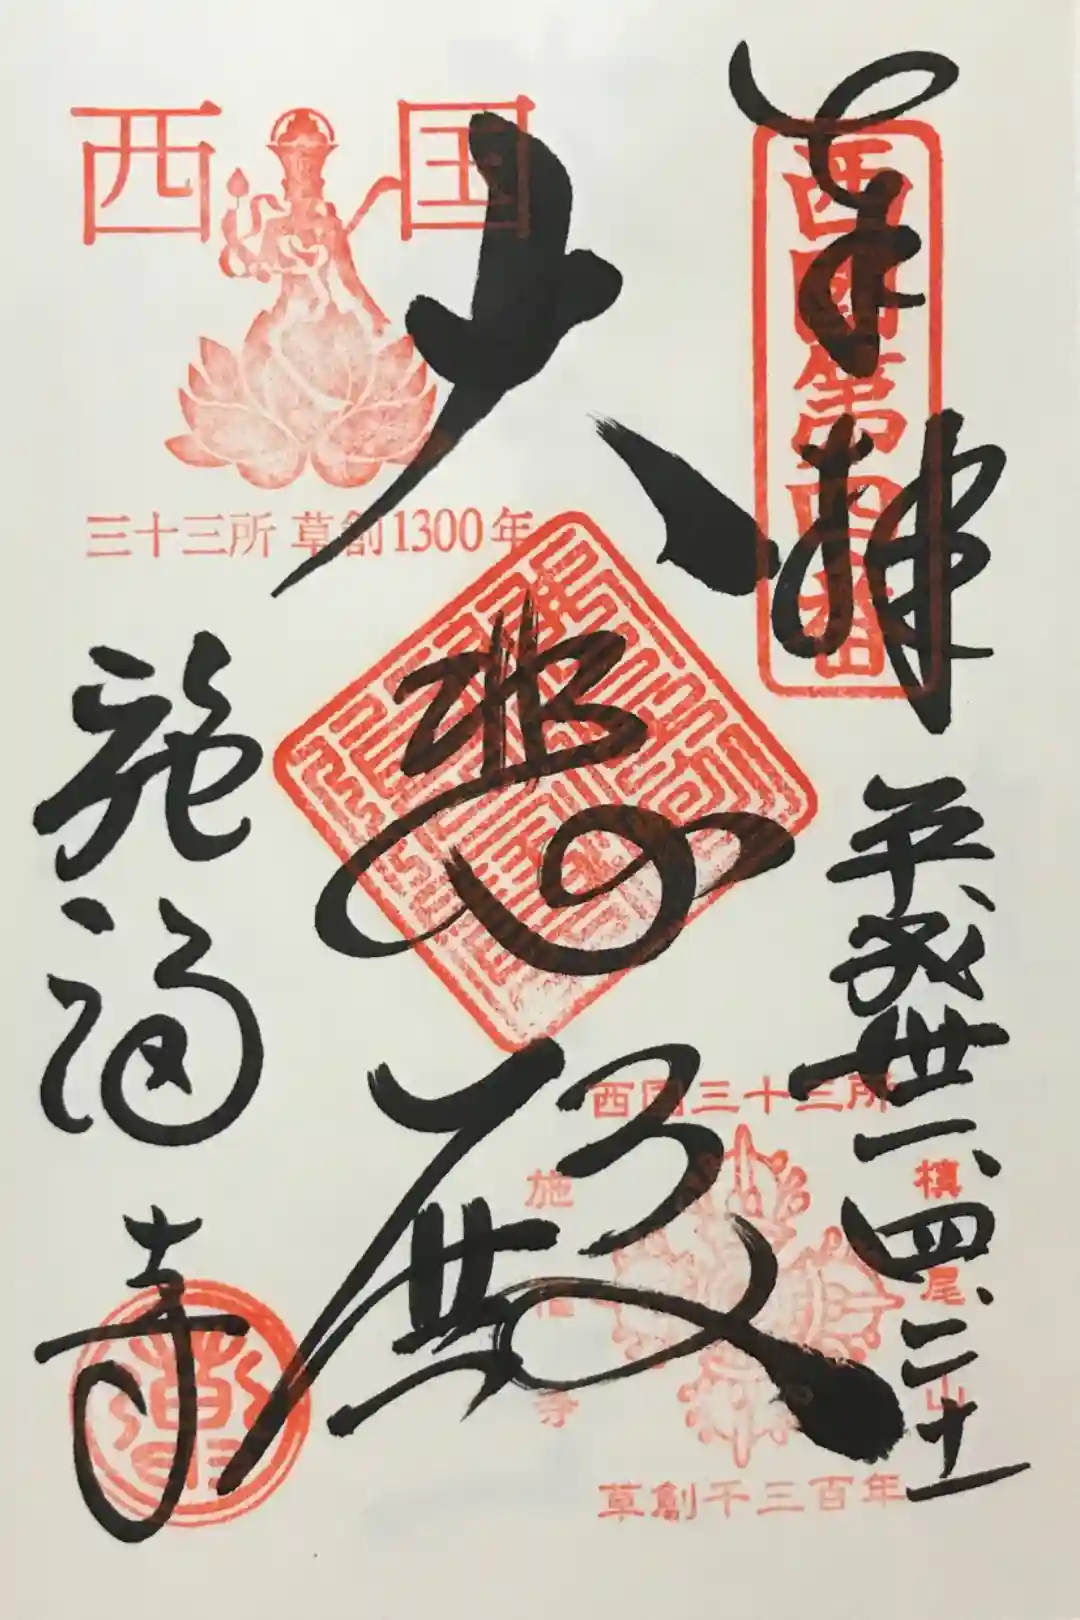 奉拝
西國第四番
平成卅一、四、二十一
大悲殿
施福寺
西国
三十三所 草創1300年
西国三十三所
槙尾山
施福寺
草創千三百年